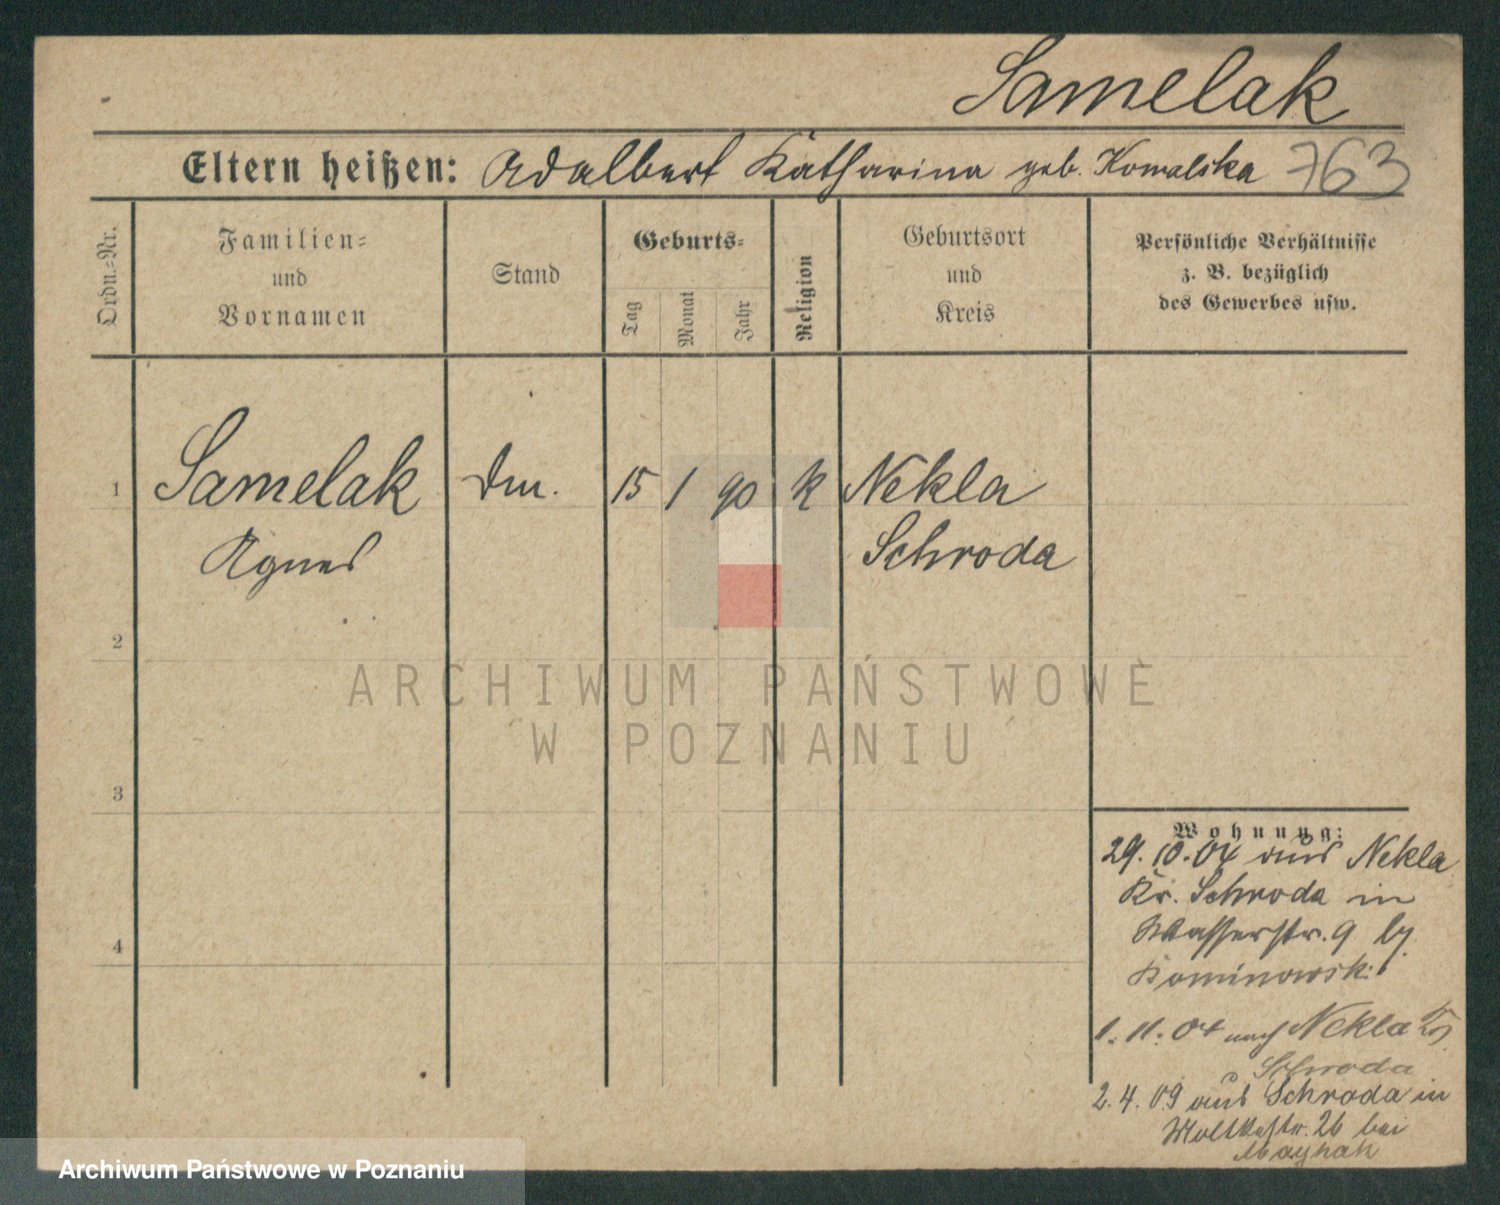 Samelak
Eltern heißen: Adalbert Katharina geb. Kowalska 763
Ordn.-Nr.
Familien-
und
Vornamen
Stand
Geburts-
Tag
Monat
Jahr
Religion
Geburtsort
und
Kreis
Persönliche Verhältnisse
z. B. bezüglich
des Gewerbes usw.
1 Samelak
Agnes
15 1 90 k Nekla
Schroda
2
3
4
Wohnung:
29.10.04 aus Nekla
Kr. Schroda in
Wasserstr. 9
1.11.04 nach Nekla
Schroda
2.4.09 aus Schroda in
Moltkestr. 26 bei
ARCHIWUM PAŃSTWOWE
W POZNANIU
Archiwum Państwowe w Poznaniu